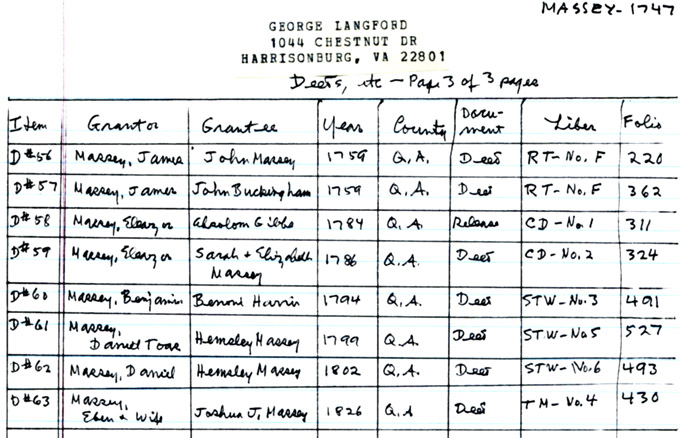 MASSEY-1747
GEORGE LANGFORD
1044 CHESTNUT DR
HARRISONBURG, VA 22801
Deeds, etc - Page 3 of 3 pages
Item Grantor Grantee Year County Docu-ment Liber Folio
D#56 Massey, James John Massey 1759 Q.A. Deed RT-No. F 220
D#57 Massey, James John Buckingham 1759 Q.A. Deed RT-No. F 362
D#58 Massey, Eleazor Absolom Gibbs 1784 Q.A. Release CD-No.1 311
D#59 Massey, Eleazor Sarah + Elizabeth 1786 Q.A. Deed CD-No.2 324
Massey
D#60 Massey, Benjamin Benoni Harris 1794 Q.A. Deed STW-No.3 491
D#61 Massey,
Daniel Toas Hemsley Massey 1799 Q.A. Deed STW-No5 527
D#62 Massey, Daniel Hemsley Massey 1802 Q.A. Deed STW-No.6 493
D#63 Massey,
Eben + Wife Joshua J. Massey 1826 Q.A Deed TM-No.4 430